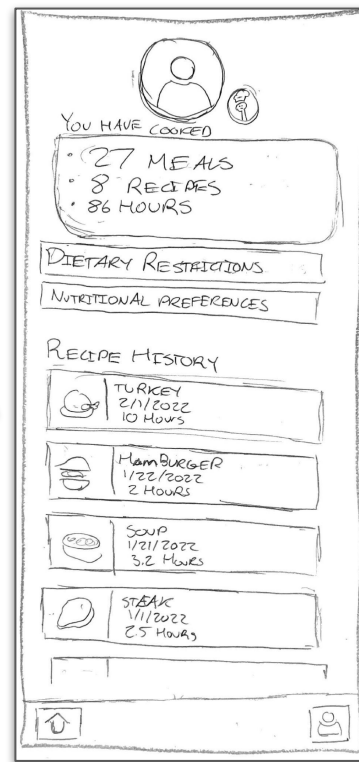 YOU HAVE COOKED
• 27 MEALS
• 8 RECIPES
• 86 HOURS
DIETARY RESTRICTIONS
NUTRITIONAL PREFERENCES
RECIPE HISTORY
TURKEY
2/1/2022
10 HOURS
HAMBURGER
1/22/2022
2 HOURS
SOUP
1/21/2022
3.2 HOURS
STEAK
1/1/2022
2.5 HOURS